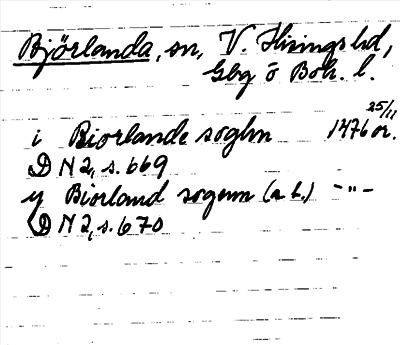 Björlanda, sn, V. Hisings hd,
Gbg o Boh. l.
i Biorlande soghn 1476 25/11 or.
DN 2, s. 669
y Biorland sogenn (a. t.) -"-
DN 2, s. 670